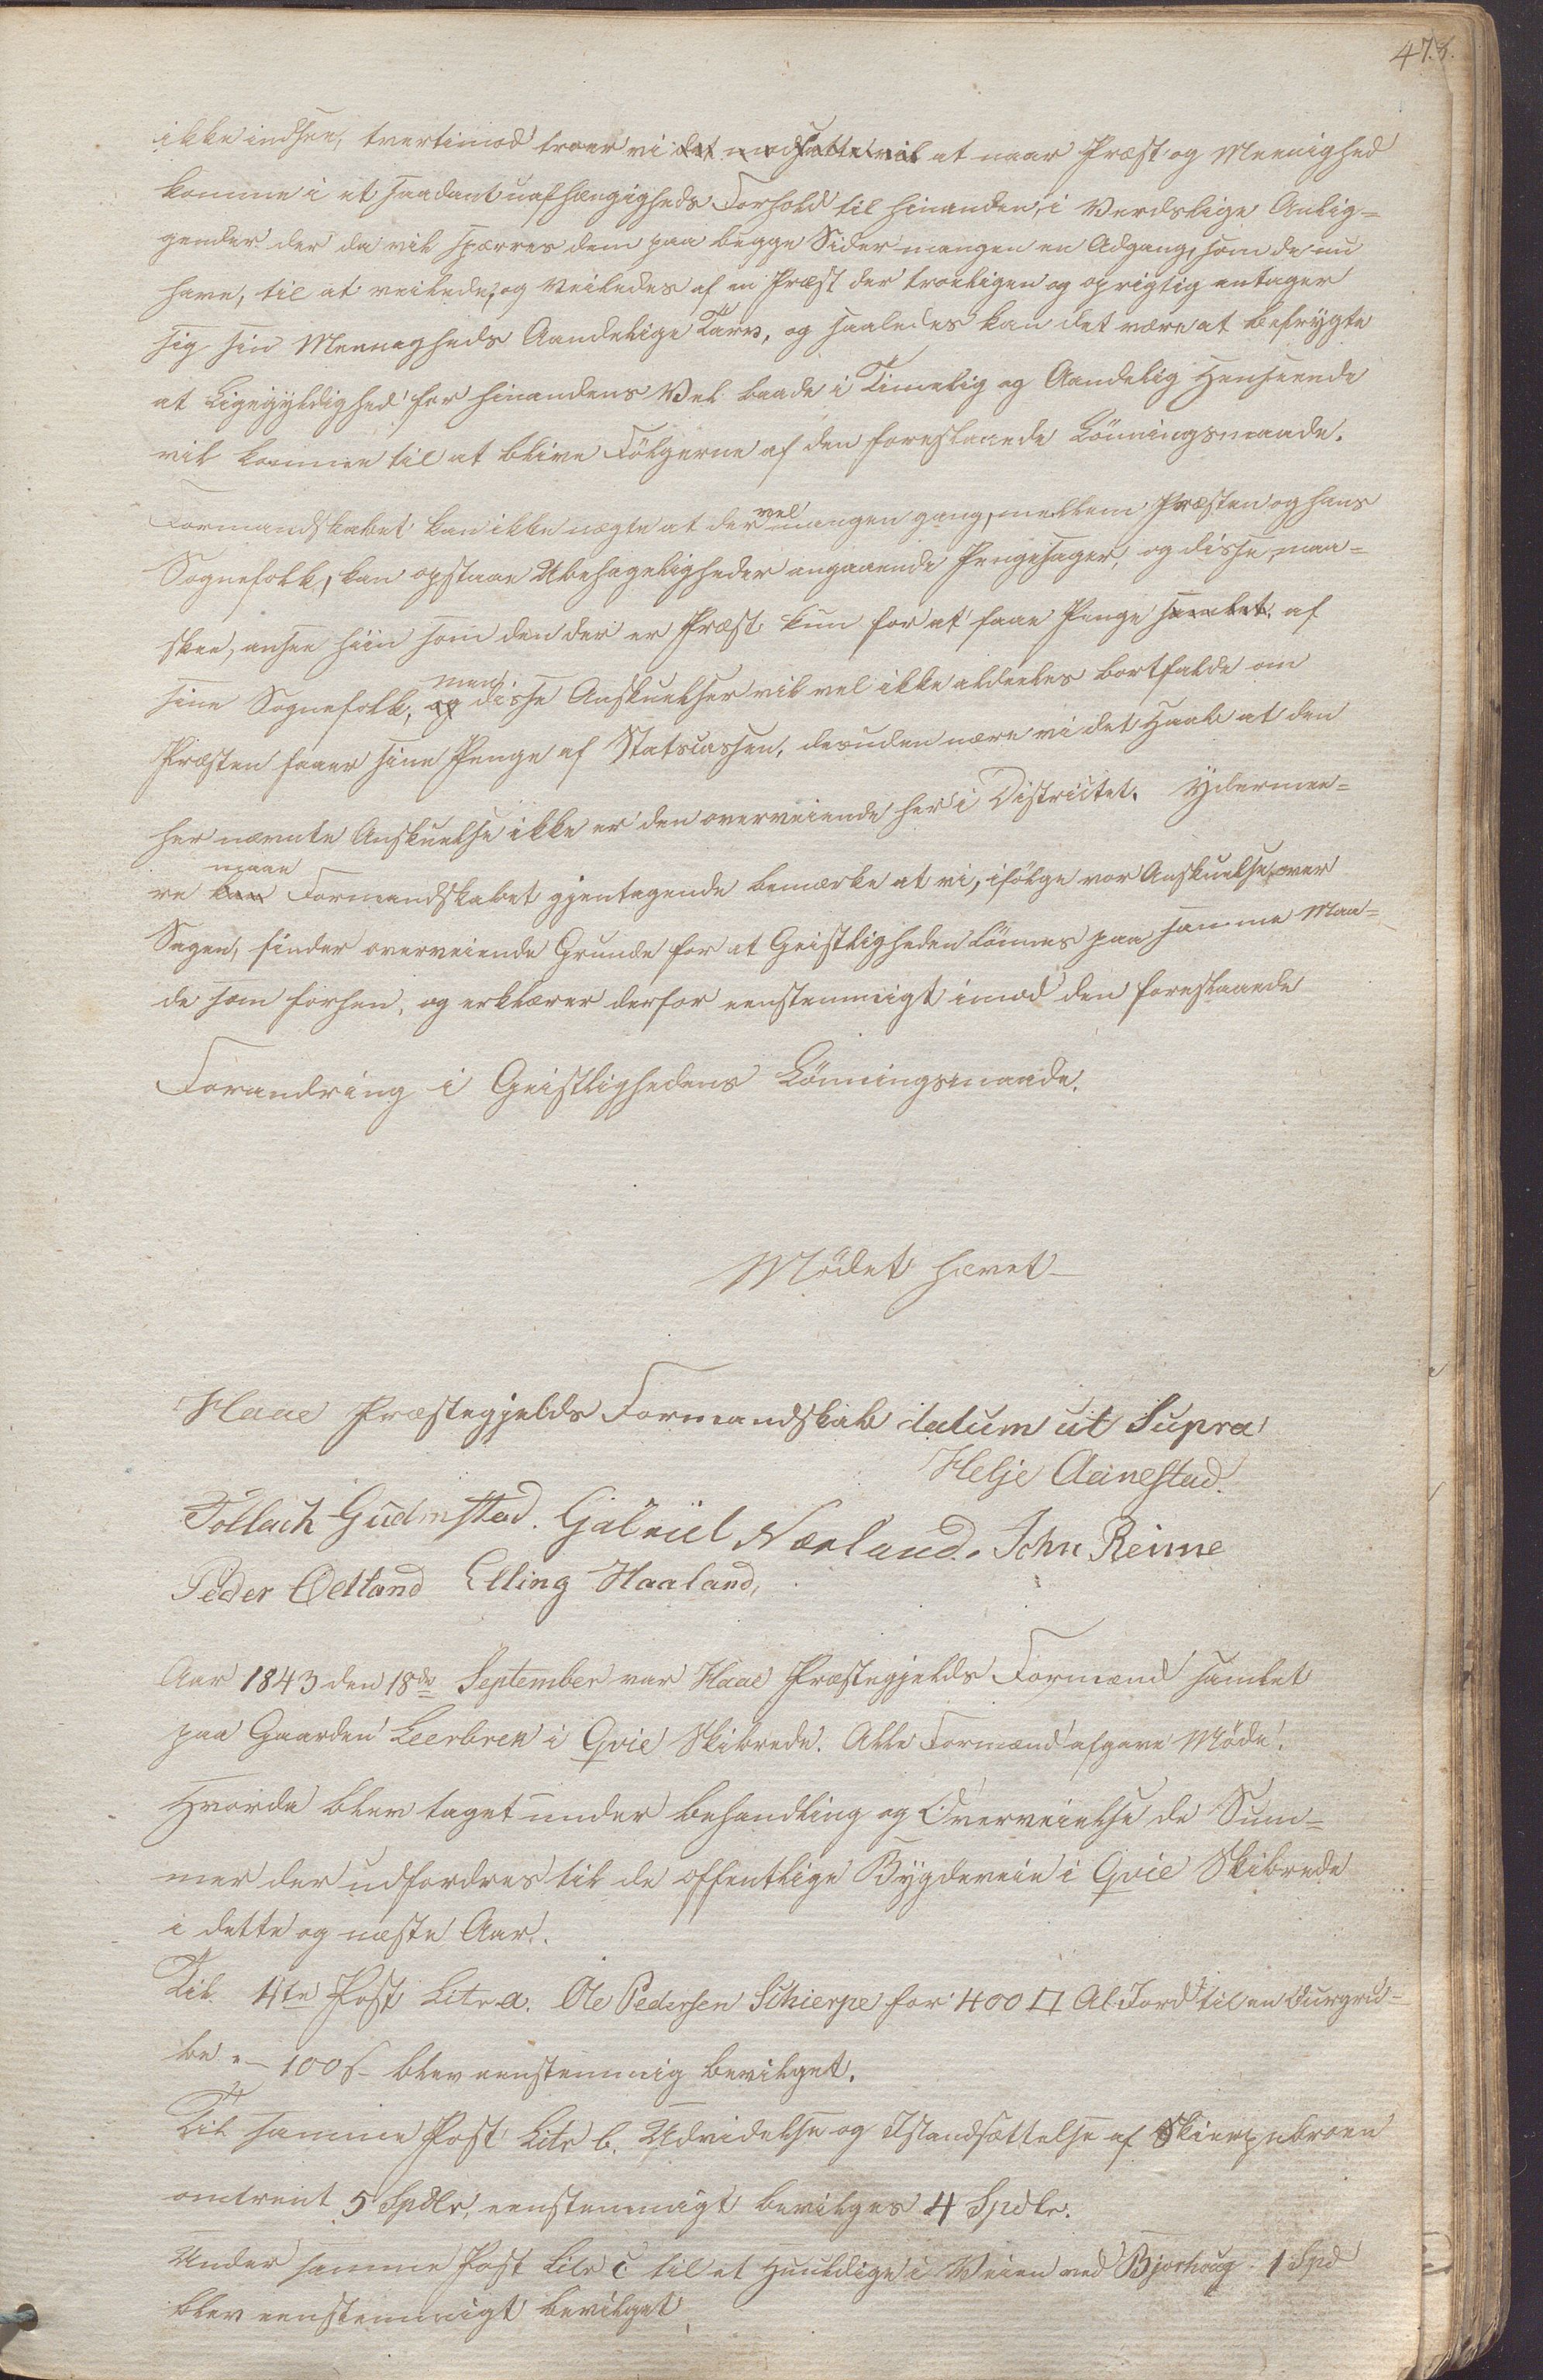 47.b.
ikke indsee, tvertimod troer vi det modsatte vil at naar Præst og Meenighed
komme i et saadant uafhængigheds Forhold til hinanden, i Verdslige Anlig=
gender der da vil spærres dem paa begge Sider mangen en Adgang, som de nu
have, til at veilede, og veiledes af en Præst der troeligen og oprigtig antager
sig sin Meenegheds Aandelige Tarv, og saaledes kan det være at befrygte
at Ligegyldighed for hinandens Vel baade i Timelig og Aandelig Henseende
vil komme til at blive Fölgerne af den foreslaaede Lönningsmaade.
Formandskabet kan ikke nægte at der vel mangen gang, mellem Præsten og hans
Sognefolk, kan opstaae Ubehageligheder angaaende Pengesager, og disse, maa=
skee, ansee hiin som den der er Præst kun for at faae Penge samlet af
sine Sognefolk, og men disse Anskuelser vil vel ikke aldeeles bortfalde om
Præsten faaer sine Penge af Statscassen, desuden nære vi det Haab at den
her nævnte Anskuelse ikke er den overveiende her i Districtet. Ydermee=
re kan maae Formandskabet gjentagende bemærke at vi, ifölge vor Anskuelse over
Sagen, finder overveiende Grunde for at Geistligheden lönnes paa samme Maa=
de som forhen, og erklærer derfor eenstemmigt imod den foreslaaede
Forandring i Geistlighedens Lönningsmaade.
Mödet hævet
Haae Præstegjelds Formandskab datum ut Supra
Helje Aanestad.
Tollach Gudmestad. Gabriel Nærland. John Reime
Peder Odland Elling Haaland,
Aar 1843 den 18de September var Haae Præstegjelds Formænd samlet
paa Gaarden Leerbrek i Qvie Skibrede. Alle Formænd afgave Möde.
Hvorda blev taget under behandling og Overveielse de Sum=
mer der udfordres til de offentlige Bygdeveie i Qvie Skibrede
i dette og næste Aar.
Til 4te Post Litr a. Ole Pedersen Schierpe for 400 □ Al Jord til en Ourgru=
be - 100 s. blev eenstemmig bevilget.
Til samme Post Litr b. Udvidelse og Istandsættelse af Skierpebroen
omtrent 5 Spdlr, eenstemmigt bevilges 4 Spdlr.
Under samme Post Litr c til et Huuldige i Veien ved Bjorhoug 1 Spd
blev eenstemmigt bevilget